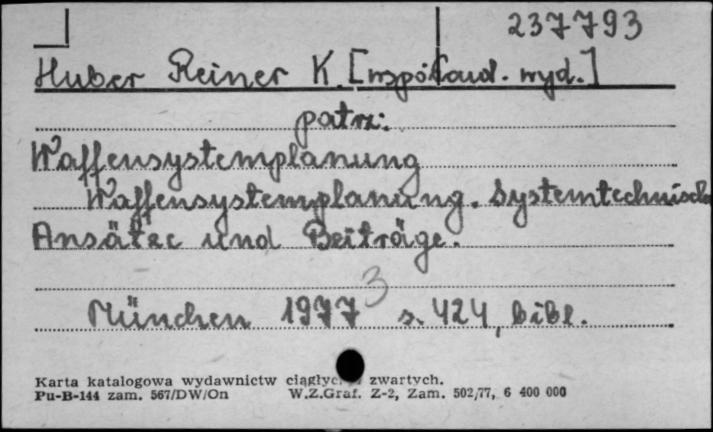 237793
Huber Reiner K. [współaud. wyd.]
patrz:
Waffensystemplanung
Waffensystemplanung. Systemtechnische
Ansätze und Beiträge.
3
München 1977 s. 424, bibl.
Karta katalogowa wydawnictw ciągłych i zwartych.
Pu-B-144 zam. 567/DW/On W.Z.Graf. Z-2, Zam. 502/77, 6 400 000